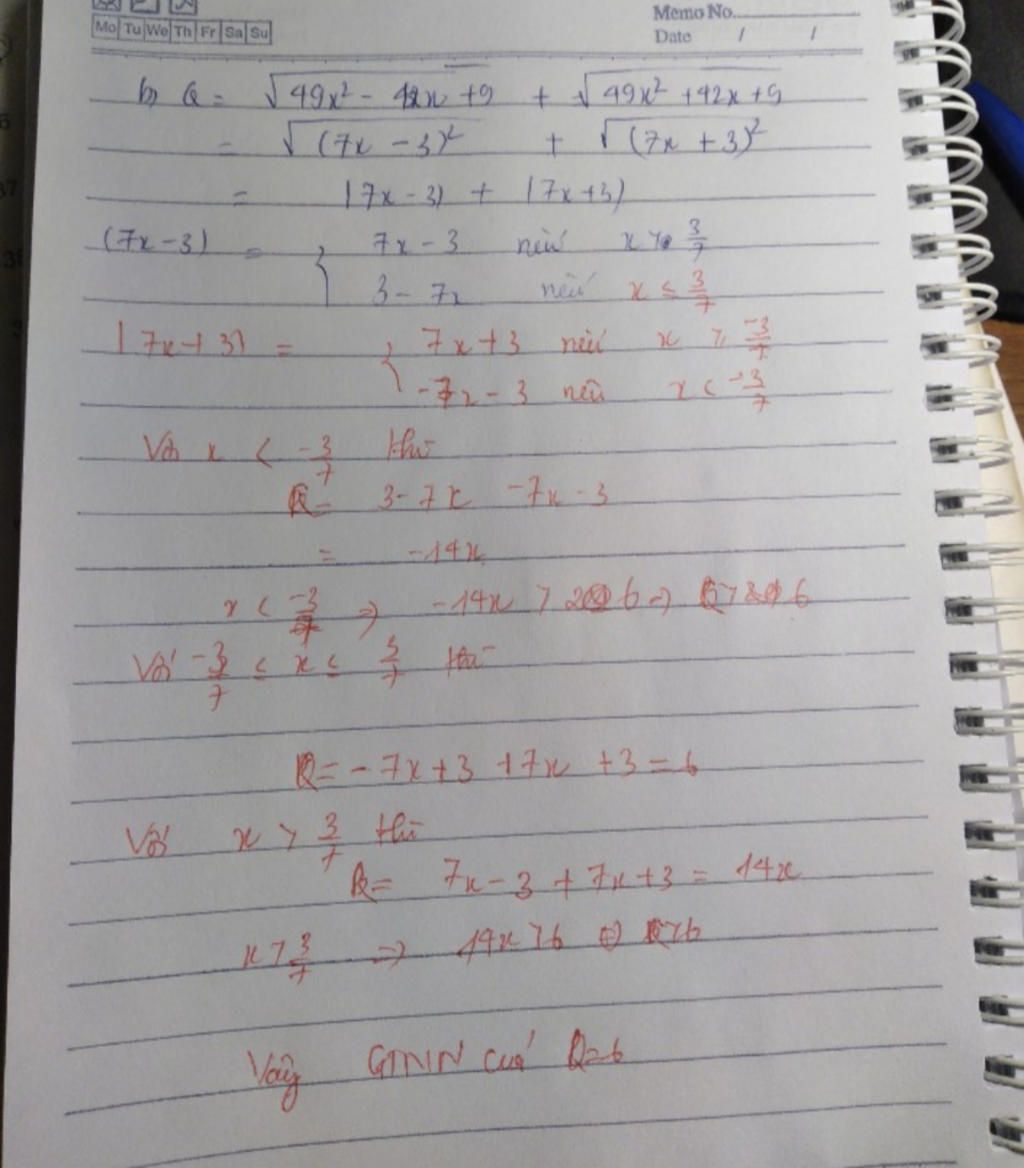 Mo Tu We Th Fr Sa Su
Memo No.
Date / /
b) Q = √(49x² - 42x + 9) + √(49x² + 42x + 9)
= √(7x - 3)² + √(7x + 3)²
= |7x - 3| + |7x + 3|
(7x - 3) = { 7x - 3 nếu x > 3/7
3 - 7x nếu x ≤ 3/7
|7x + 3| = { 7x + 3 nếu x ≥ -3/7
-7x - 3 nếu x < -3/7
Với x < -3/7 thì
Q = 3 - 7x - 7x - 3
= -14x
x < -3/7 => -14x > 6 => Q > 6
Với -3/7 ≤ x ≤ 3/7 thì
Q = -7x + 3 + 7x + 3 = 6
Với x > 3/7 thì
Q = 7x - 3 + 7x + 3 = 14x
x > 3/7 => 14x > 6 Q > 6
Vậy GTNN của Q = 6